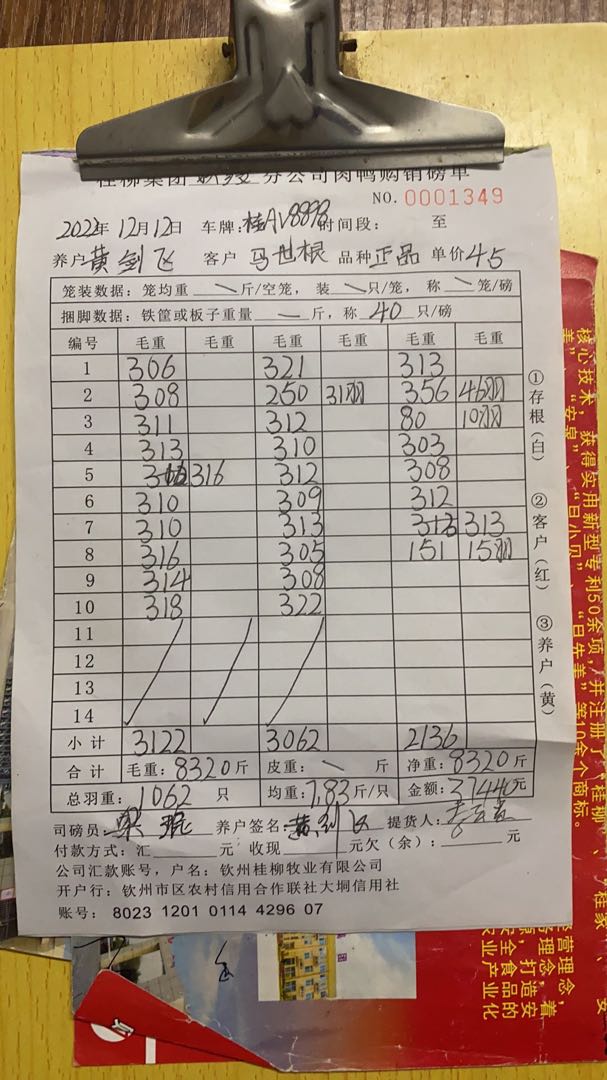 桂柳集团 分公司肉鸭购销磅单
NO. 0001349
2022年12月12日 车牌:桂AV8898 时间段: 至
养户 黄剑飞 客户 马世根 品种 正品 单价 45
笼装数据:笼均重 斤/空笼,装 只/笼,称 笼/磅
捆脚数据:铁筐或板子重量 斤,称 40 只/磅
编号 毛重 毛重 毛重 毛重 毛重 毛重
1 306 321 313
2 308 250 31羽 356 46羽
3 311 312 80 10羽
4 313 310 303
5 316 312 308
6 310 309 312
7 310 313 313 313
8 316 305 151 15羽
9 314 308
10 318 322
11
12
13
14
小计 3122 3062 2136
合计 毛重:8320斤 皮重: 斤 净重:8320斤
总羽重: 1062 只 均重:7.83斤/只 金额:37440元
司磅员: 养户签名:黄剑飞 提货人:
付款方式:汇 元 收现 元欠(余): 元
公司汇款账号,户名:钦州桂柳牧业有限公司
开户行:钦州市区农村信用合作联社大垌信用社
账号: 8023 1201 0114 4296 07
①存根(白) ②客户(红) ③养户(黄)
核心技术,获得实用新型专利50余项,并注册了